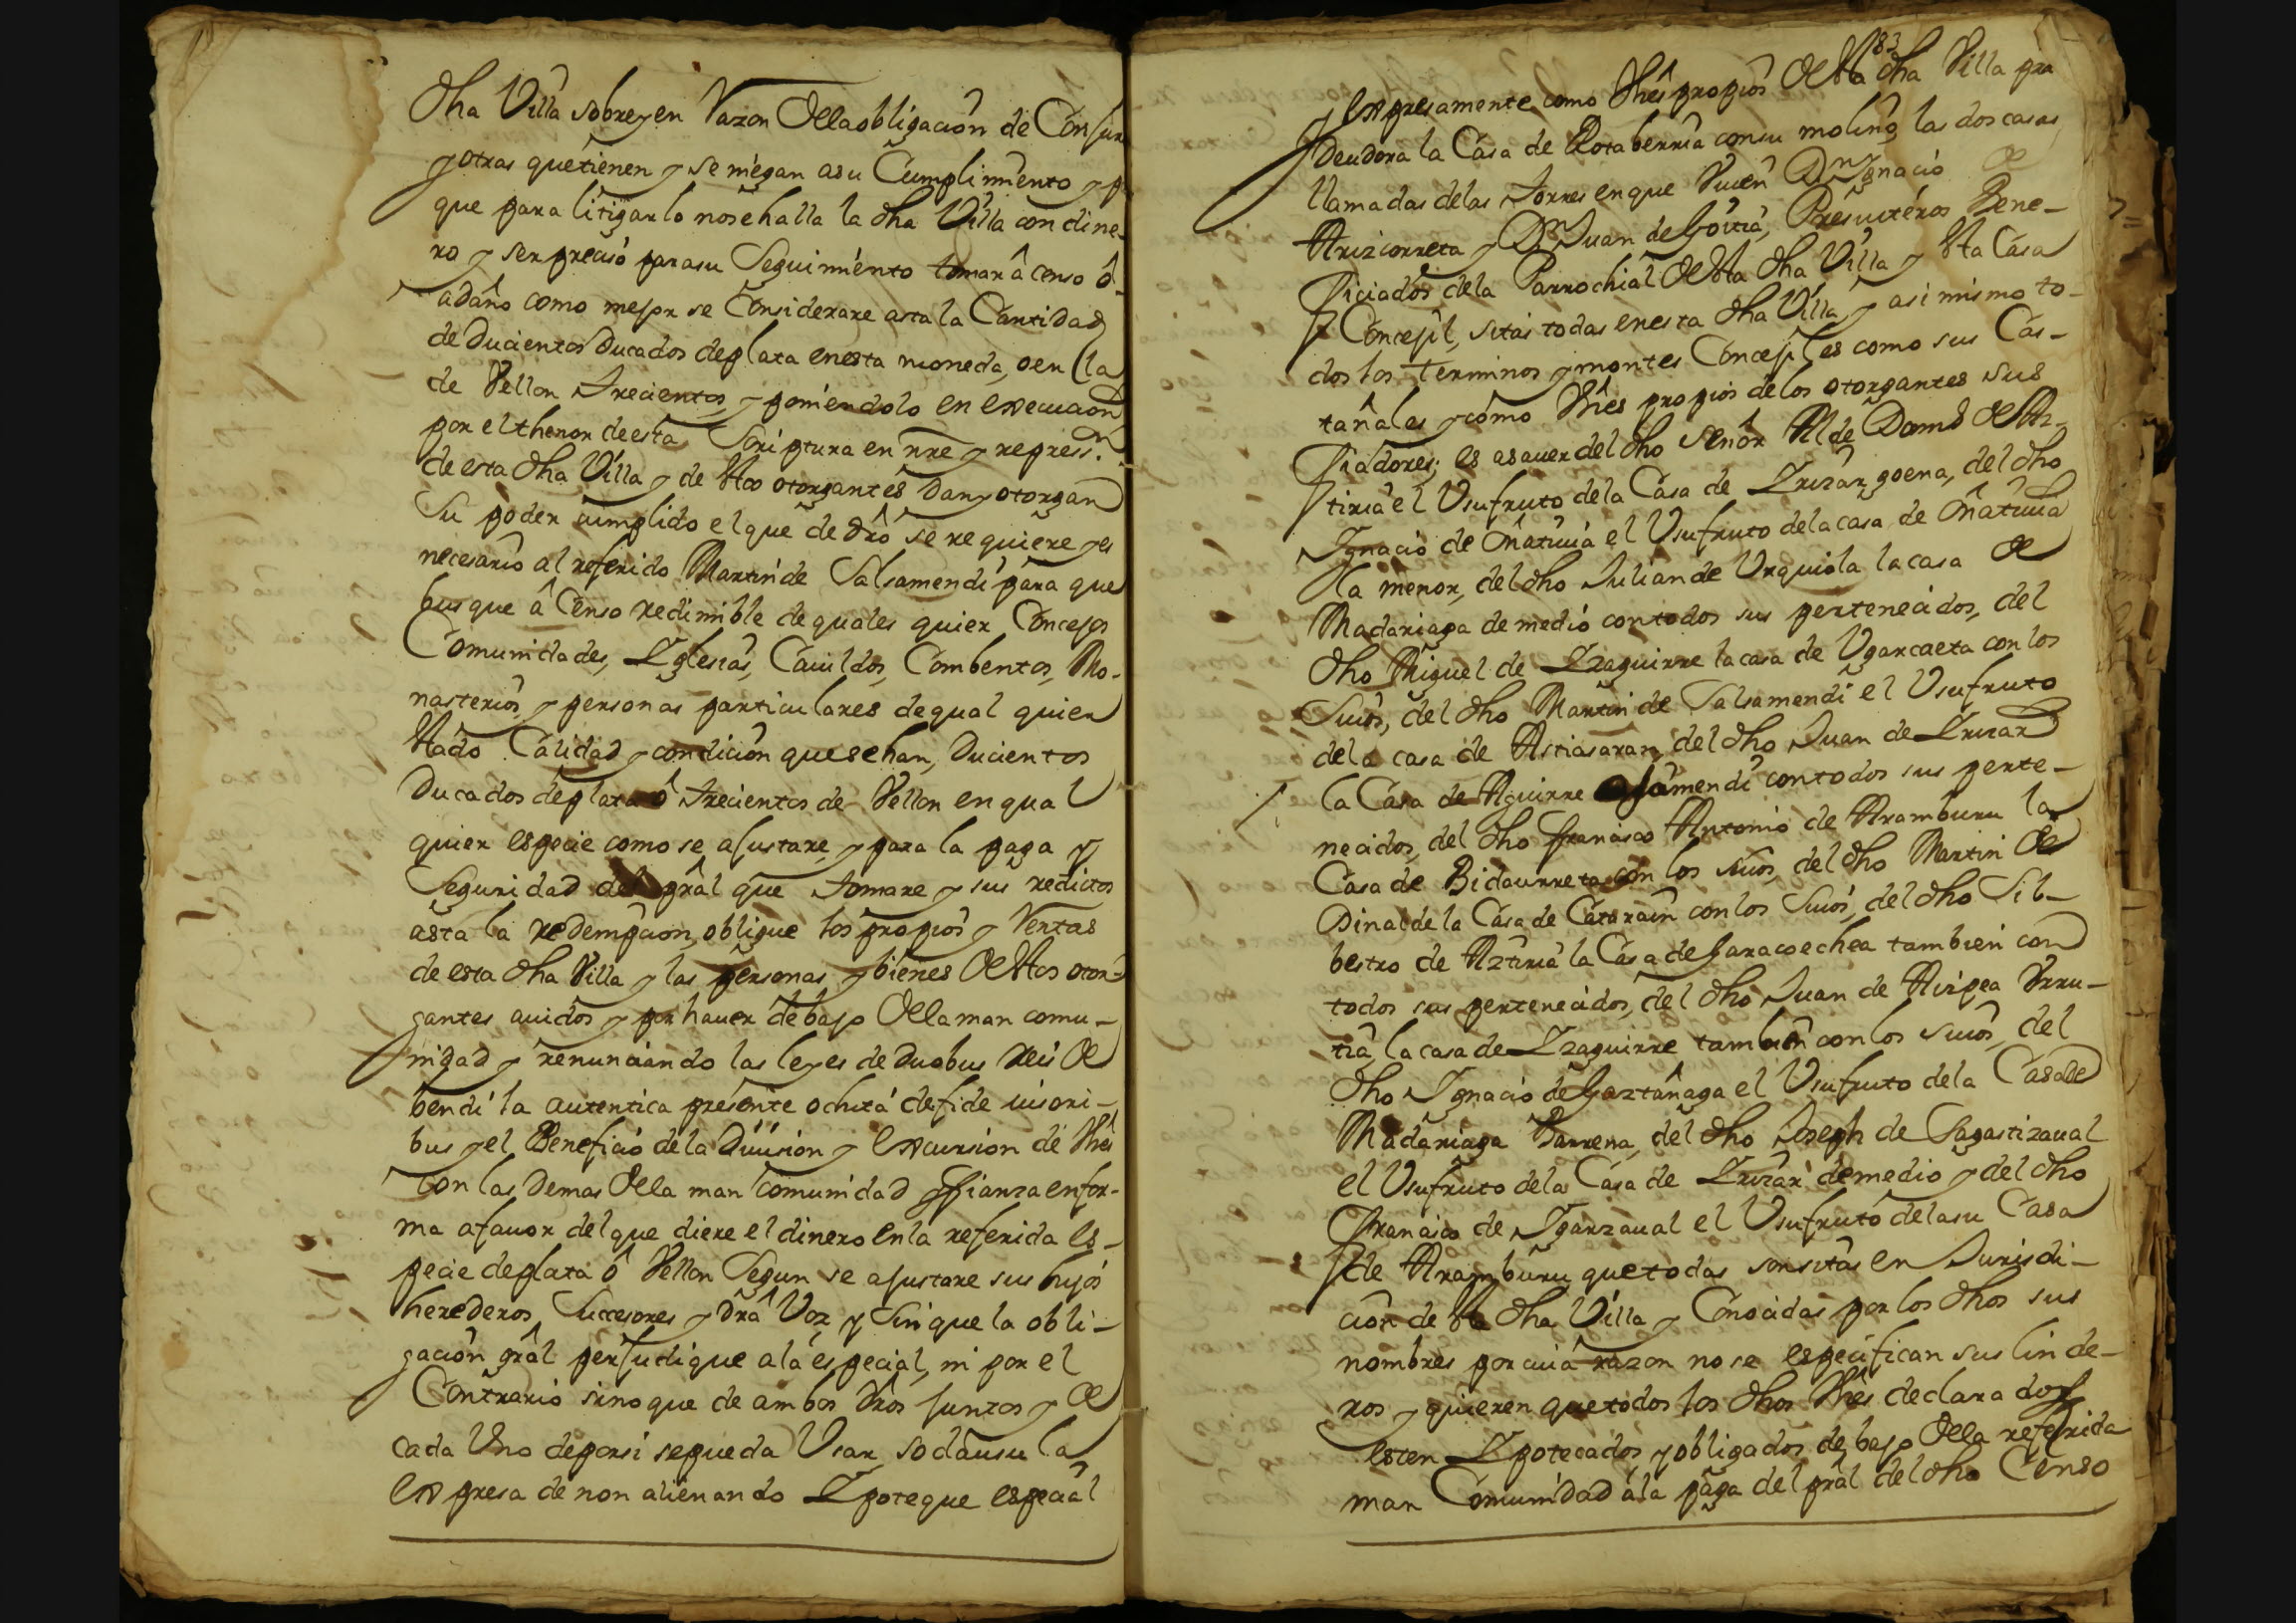 dha Villa sobre y en Razon dela obligacion de Consur
y otras que tienen y se niegan a su Cumplimiento y p
que para litigarlo no se halla la dha Villa con dine-
ro y ser preciso para su Seguimiento tomar â censo ô
a daño como mejor se Considerare asta la Cantidad
de Ducientos Ducados de plata en esta moneda, o en la
de Vellon Trecientos, y poniendolo en execucion
por el thenor de esta Scriptura en nre y repress.n
de esta dha Villa y de stos otorgantes Dan y otorgan
Su poder cumplido el que de dro se requiere y es
necesario al referido Martin de Salsamendi para que
busque â Censo redimible de quales quier Concejos
Comunidades, Yglesias, Cauildos, Combentos, Mo-
nasterios, y personas particulares de qual quier
stado Calidad y condicion que sehan, Ducientos
Ducados de plata ô Trecientos de Vellon en qual
quier especie como se ajustare, y para la paga y
Seguridad del pral que tomare y sus reditos
asta la redempcion, oblique los propios y Rentas
de esta dha Villa y las personas y bienes destos otor-
gantes auidos y por hauer debajo dela man comu-
nidad y renunciando las leyes de duobus reis de
bendi la autentica presente ochita de fide iusori-
bus y el Beneficio de la Diuision y excursion de vnes
con las demas dela man comunidad y fianza en for-
ma a fauor del que diere el dinero en la referida es-
pecie de plata ô Vellon Segun se ajustare sus hijos
herederos, Succesores y dra Voz, y Sin que la obli-
gacion gral perjudique a la especial, ni por el
Contrario sino que de ambos dros juntos y de
cada Uno de por si se pueda Usar so clausula
expresa de non alienando Ypoteque especial
183
y expresamente como vnes propios desta dha Villa
Deudora la Casa de Rotaberria con su molino, las dos casas
llamadas de las Torres en que Viuen Dn Ygnacio de
Arizcorreta y Dn Juan de Goitia, Presuiteros Bene-
ficiados de la Parrochial desta dha Villa y sta Casa
Concejil, sitas todas en esta dha Villa, y asi mismo to-
dos los terminos y montes Concejiles como sus Cas-
tañales y como vnes propios de los otorgantes sus
fiadores; es a sauer del dho Señor Alde Domo de As-
tiria el Usufruto de la Casa de Yrizar goena, del dho
Ignacio de Oñatiuia el Usufruto de la casa de Oñatiuia
la menor, del dho Julian de Urquiola la casa de
Madariaga de medio con todos sus pertenecidos, del
dho Miguel de Yzaguirre la casa de Ugarcaeta con los
Suios, del dho Martin de Salsamendi el Usufruto
de la casa de Astiasaran, del dho Juan de Yrizar
la Casa de Aguirre mendi con todos sus perte-
necidos, del dho francisco Antonio de Aramburu la
Casa de Bidaurreta con los suios, del dho Martin de
Dinal de la Casa de Catarain con los Suios, del dho Sil-
bestro de Aztiria la Casa de Garacoechea tambien con
todos sus pertenecidos, del dho Juan de Airpea Urru-
tia, la casa de Yzaguirre tambien con los suios, del
dho Ignacio de Gaztañaga el Usufruto de la Casa de
Madariaga Barrena, del dho Joseph de Sagastizaual
el Usufruto de la Casa de Yrizar de medio y del dho
Francisco de Igarzaual el Usufruto de la su Casa
de Aramburu que todas son sitas en Jurisdi-
cion de sta dha Villa y Conocidas por los dhos sus
nombres por cuia razon no se especifican sus linde-
ros y quieren que todos los dhos vnes declarados
esten Ypotecados y obligados debajo dela referida
man Comunidad â la paga del pral del dho Censo